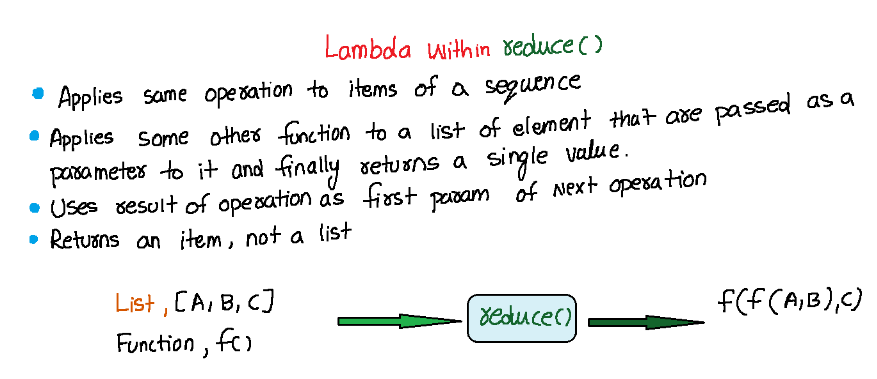 Lambda within reduce()
Applies same operation to items of a sequence
Applies some other function to a list of element that are passed as a
parameter to it and finally returns a single value.
Uses result of operation as first param of Next operation
Returns an item, not a list
List, [A, B, C]
Function, f()
reduce()
f(f(A,B),C)